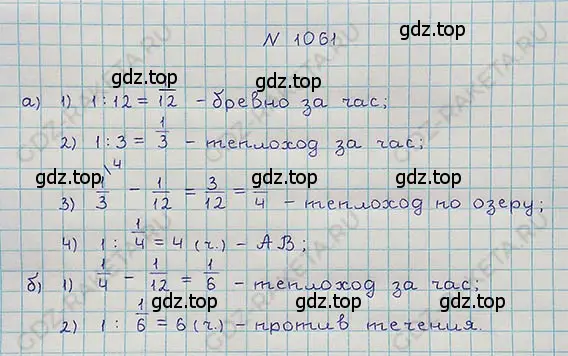 N 1061
gdz.top
а) 1) 1 : 12 = 1/12 - бревно за час;
2) 1 : 3 = 1/3 - теплоход за час;
gdz.top gdz.top gdz.top
3) 1/3 \4 - 1/12 = 3/12 = 1/4 - теплоход по озеру;
4) 1 : 1/4 = 4 (ч.) - АВ;
gdz.top gdz.top gdz.top
б) 1) 1/4 - 1/12 = 1/6 - теплоход за час;
gdz.top gdz.top
2) 1 : 1/6 = 6 (ч.) - против течения.
GDZ-RAKETA.RU